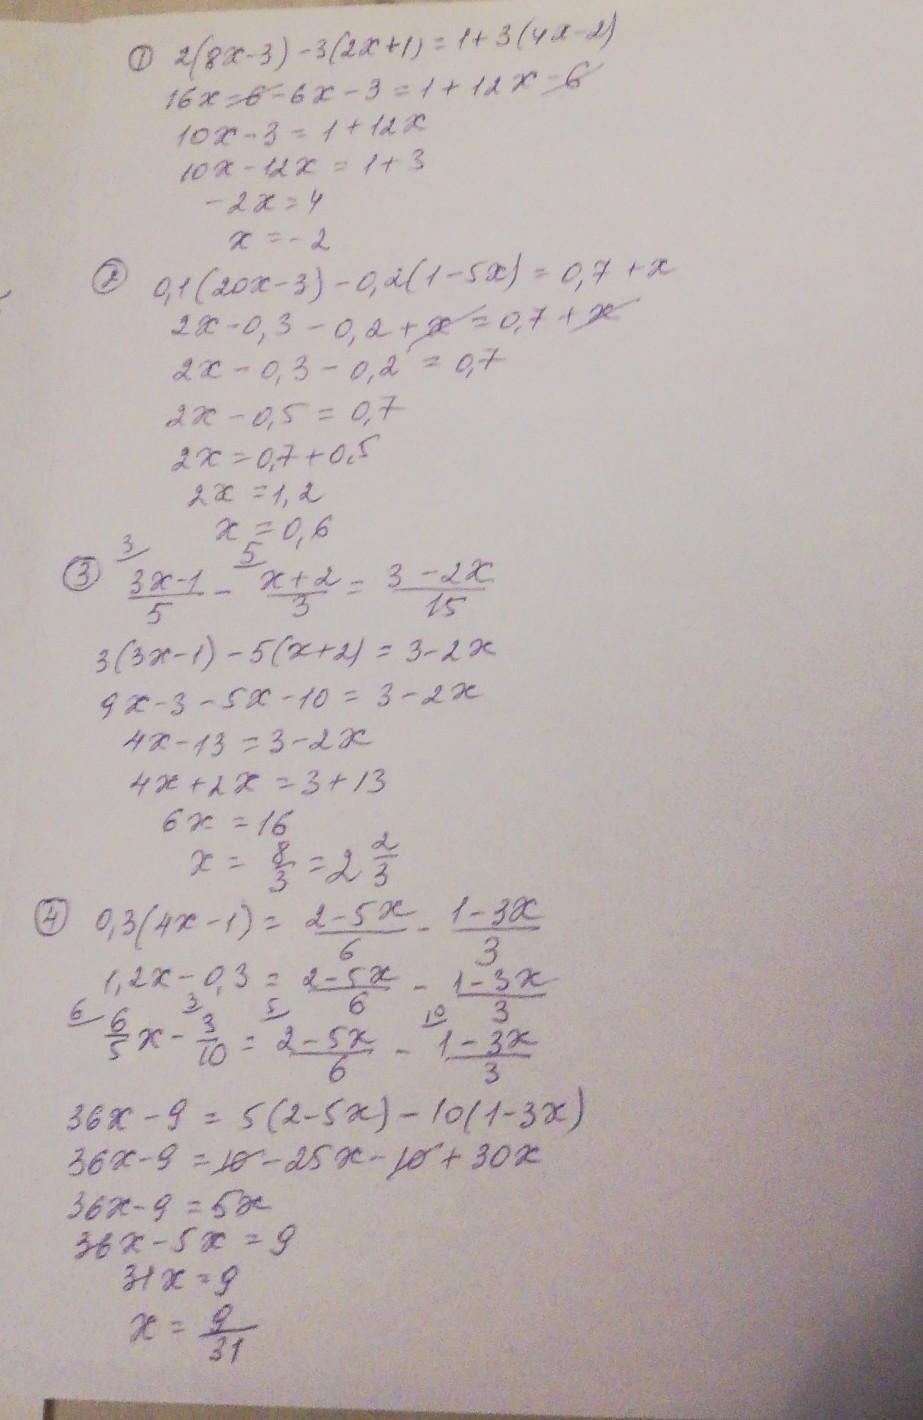 ① 2(8x-3)-3(2x+1)=1+3(4x-2)
16x-6-6x-3=1+12x-6
10x-3=1+12x
10x-12x=1+3
-2x=4
x=-2
② 0,1(20x-3)-0,2(1-5x)=0,7+x
2x-0,3-0,2+x=0,7+x
2x-0,3-0,2=0,7
2x-0,5=0,7
2x=0,7+0,5
2x=1,2
x=0,6
3 5
③ 3x-1/5 - x+2/3 = 3-2x/15
3(3x-1)-5(x+2)=3-2x
9x-3-5x-10=3-2x
4x-13=3-2x
4x+2x=3+13
6x=16
x=8/3=2 2/3
④ 0,3(4x-1)= 2-5x/6 - 1-3x/3
1,2x-0,3= 2-5x/6 - 1-3x/3
6 3 5 10
6/5 x - 3/10 = 2-5x/6 - 1-3x/3
36x-9=5(2-5x)-10(1-3x)
36x-9=10-25x-10+30x
36x-9=5x
36x-5x=9
31x=9
x=9/31